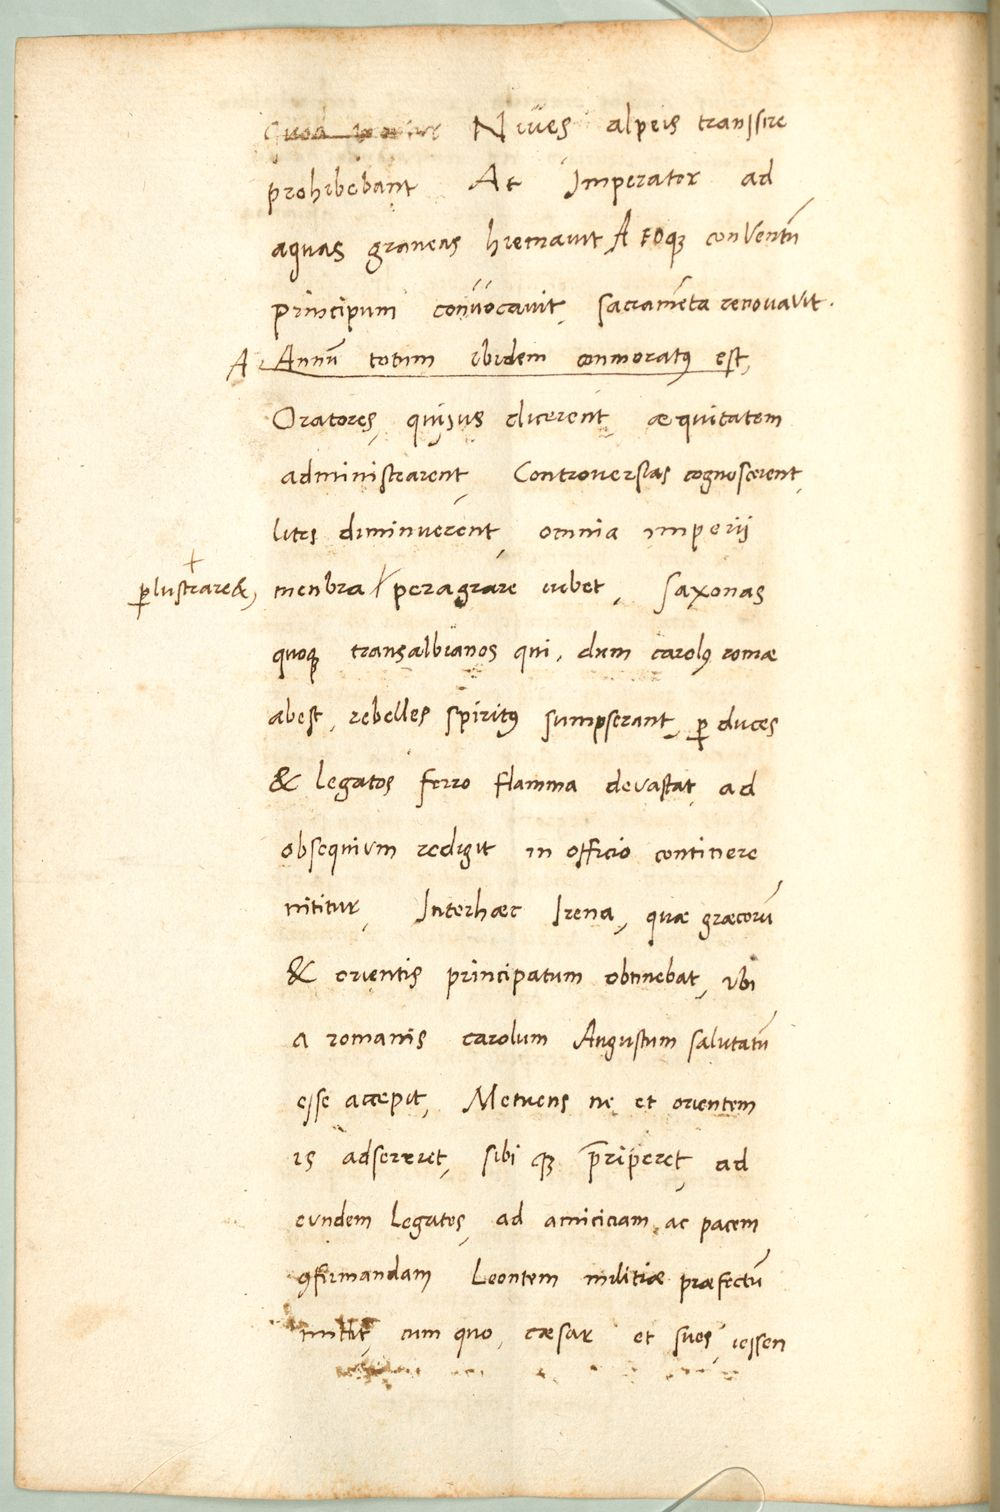 Nives alpeis transire
prohibebant At Imperator ad
aquas graneas hiemavit A EOqꝫ conVentū
principum convocavit, sacramēta renovavit.
A Annū totum ibidem conmoratꝰ est,
Oratores, qui ius dicerent, æquitatem
administrarent, Controversias cognoscerent,
lites diminuerent, omnia imperii
ꝑlustrare &, menbra peragrare iubet, Saxonas
quoqꝫ transalbianos qui, dum carolꝰ romæ
abest, rebelles spiritꝰ sumpserant, ꝑ duces
& legatos ferro flamma devastat, ad
obsequium redigit in officio continere
nititur, Interhæc Irena, quæ græcorū
& orientis principatum obtinebat, ubi
a romanis carolum Augustum salutatū
esse accepit, Metuens ne et orientem
is adsereret, sibi qꝫ p̄riperet, ad
eundem legatos, ad amiciciam ac pacem
ꝯfirmandam Leontem militiæ præfectū
mittit, cum quo, cæsar et suos, iessen